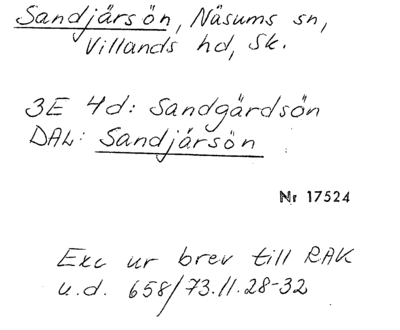 Sandjårsön, Näsums sn,
Villands hd, Sk.
3E 4d: Sandgårdsön
DAL: Sandjårsön
Nr 17524
Exc ur brev till RAK
u.d. 658/73.11.28-32